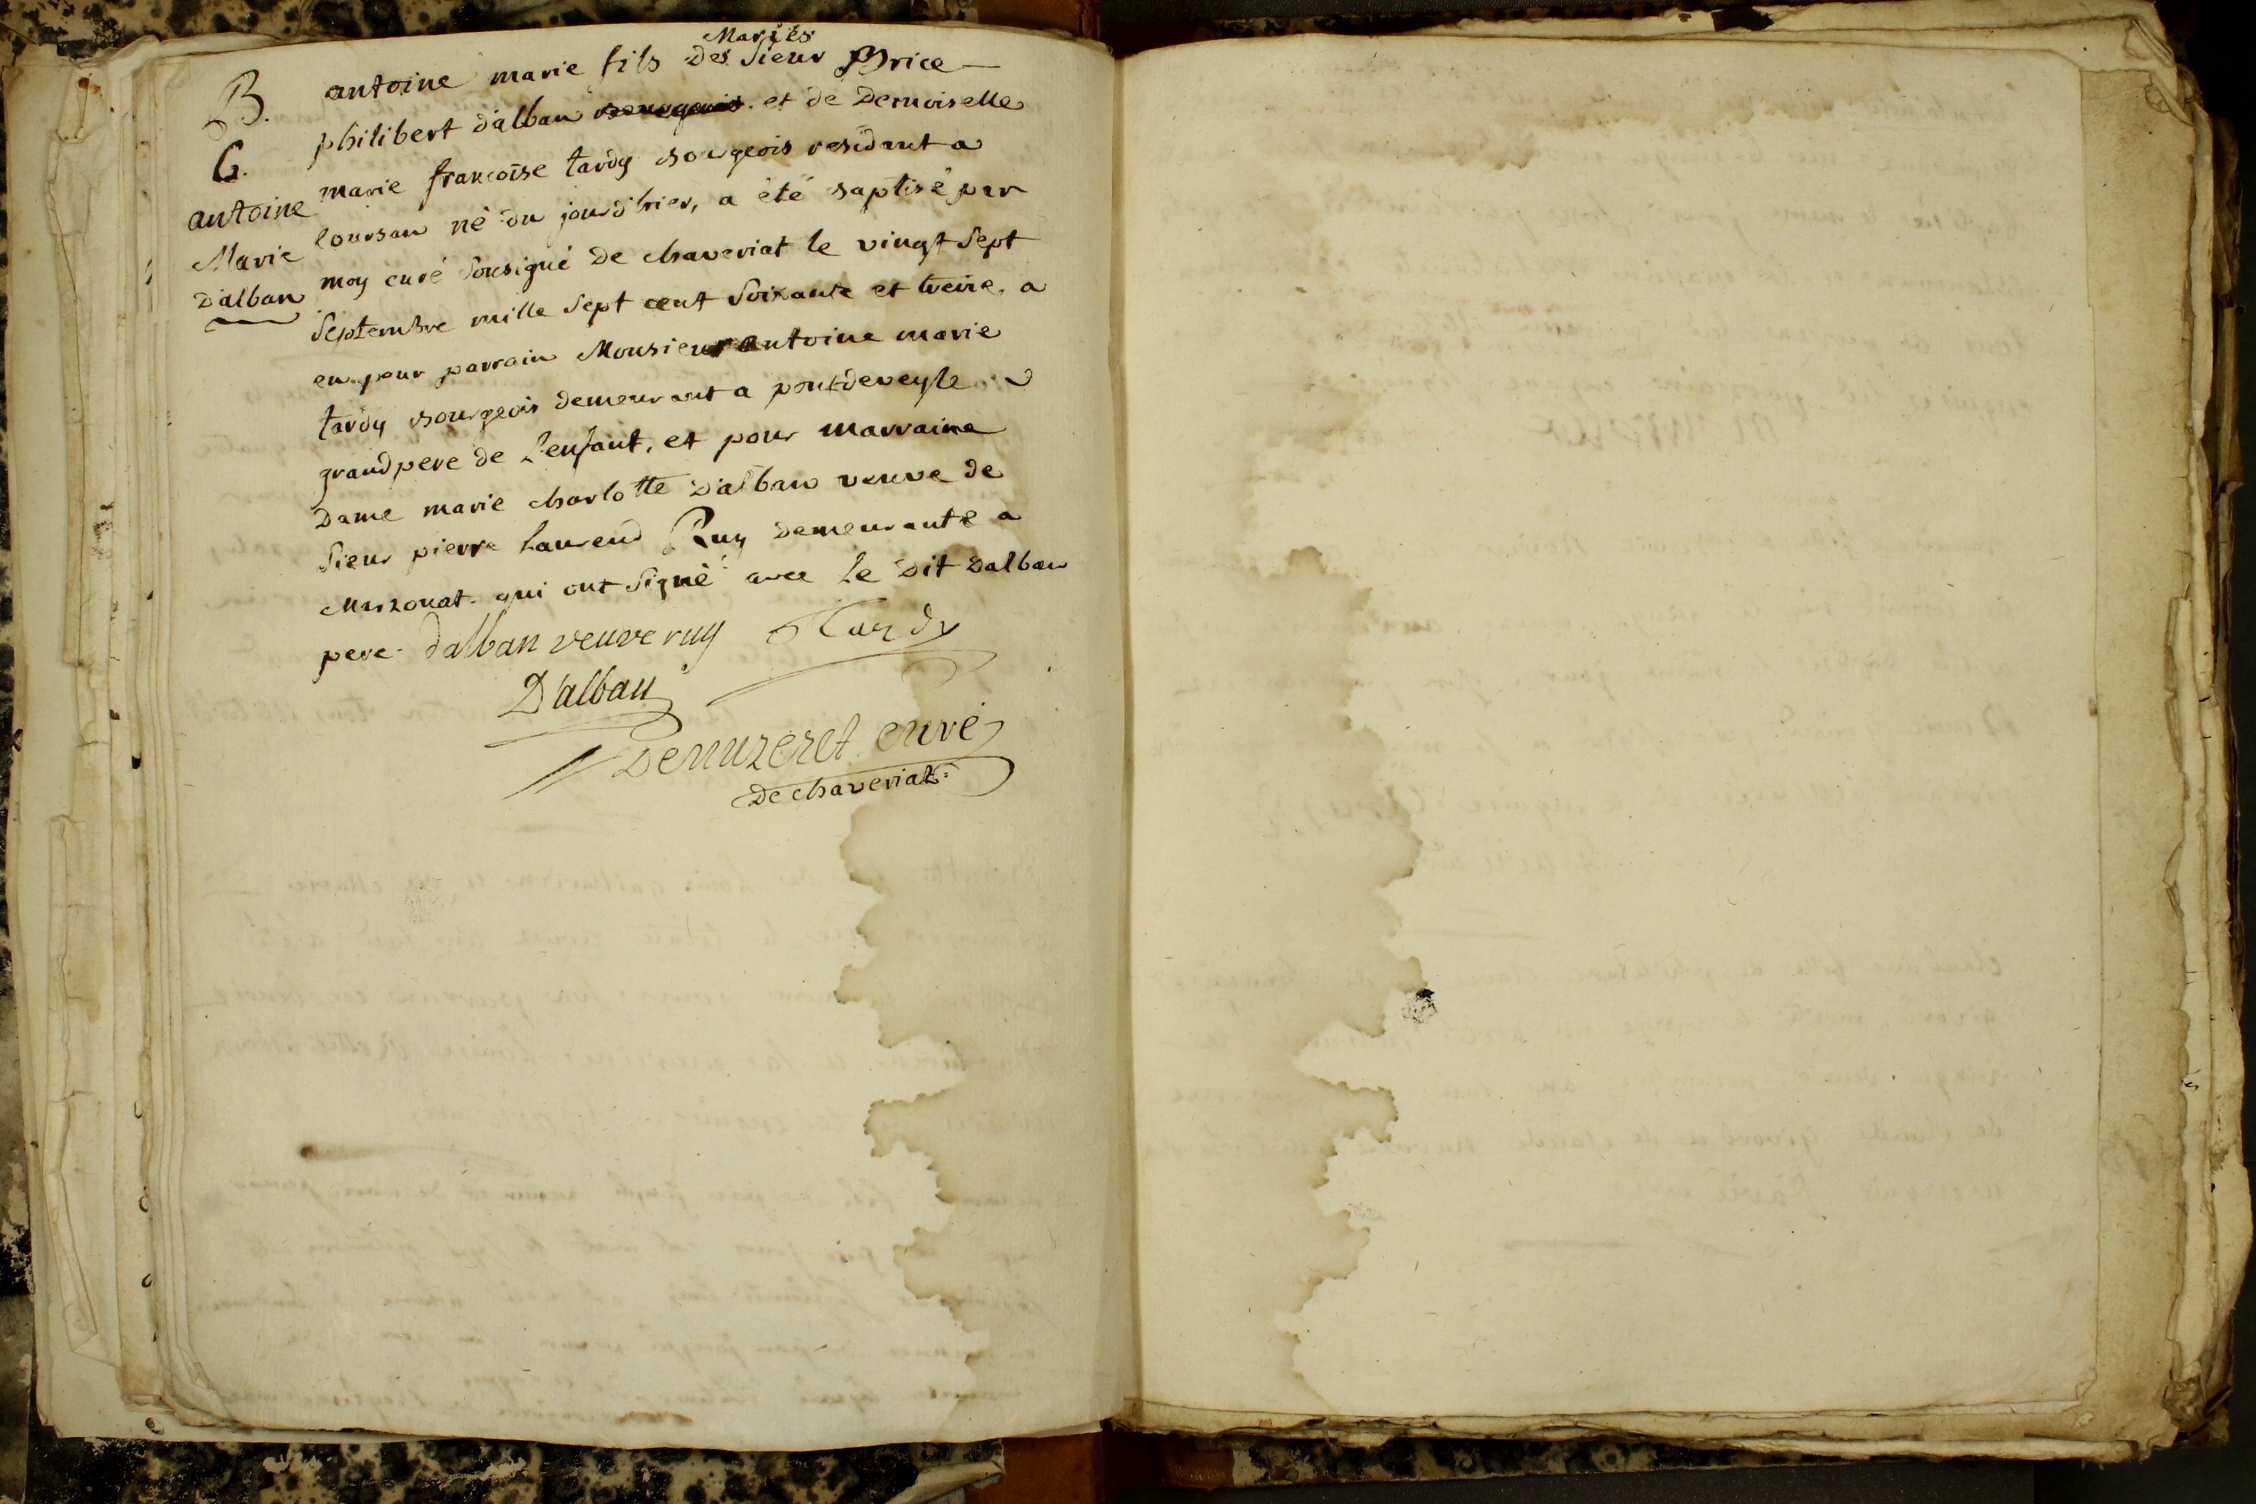 B.
G.
antoine
Marie
D'alban
Mariés
antoine marie fils des sieur Brice
philibert d'alban bourgeois et de Demoiselle
marie françoise tardy bourgeois residant a
loursan né du jour d'hier, a été baptisé par
moy curé sousigné de chaveriat le vingt sept
septembre mille sept cent soixante et treize. a
eu pour parrain Monsieur antoine marie
tardy bourgeois demeurant a pontdeveyle
grandpere de l'enfant, et pour marraine
Dame marie charlotte D'alban veuve de
sieur pierre laurend Ruy demeurante a
Mizonat. qui ont signé avec le Dit Dalban
pere. dalban veuve ruy Tardy
D'alban
Demuzeret curé
De chaveriat